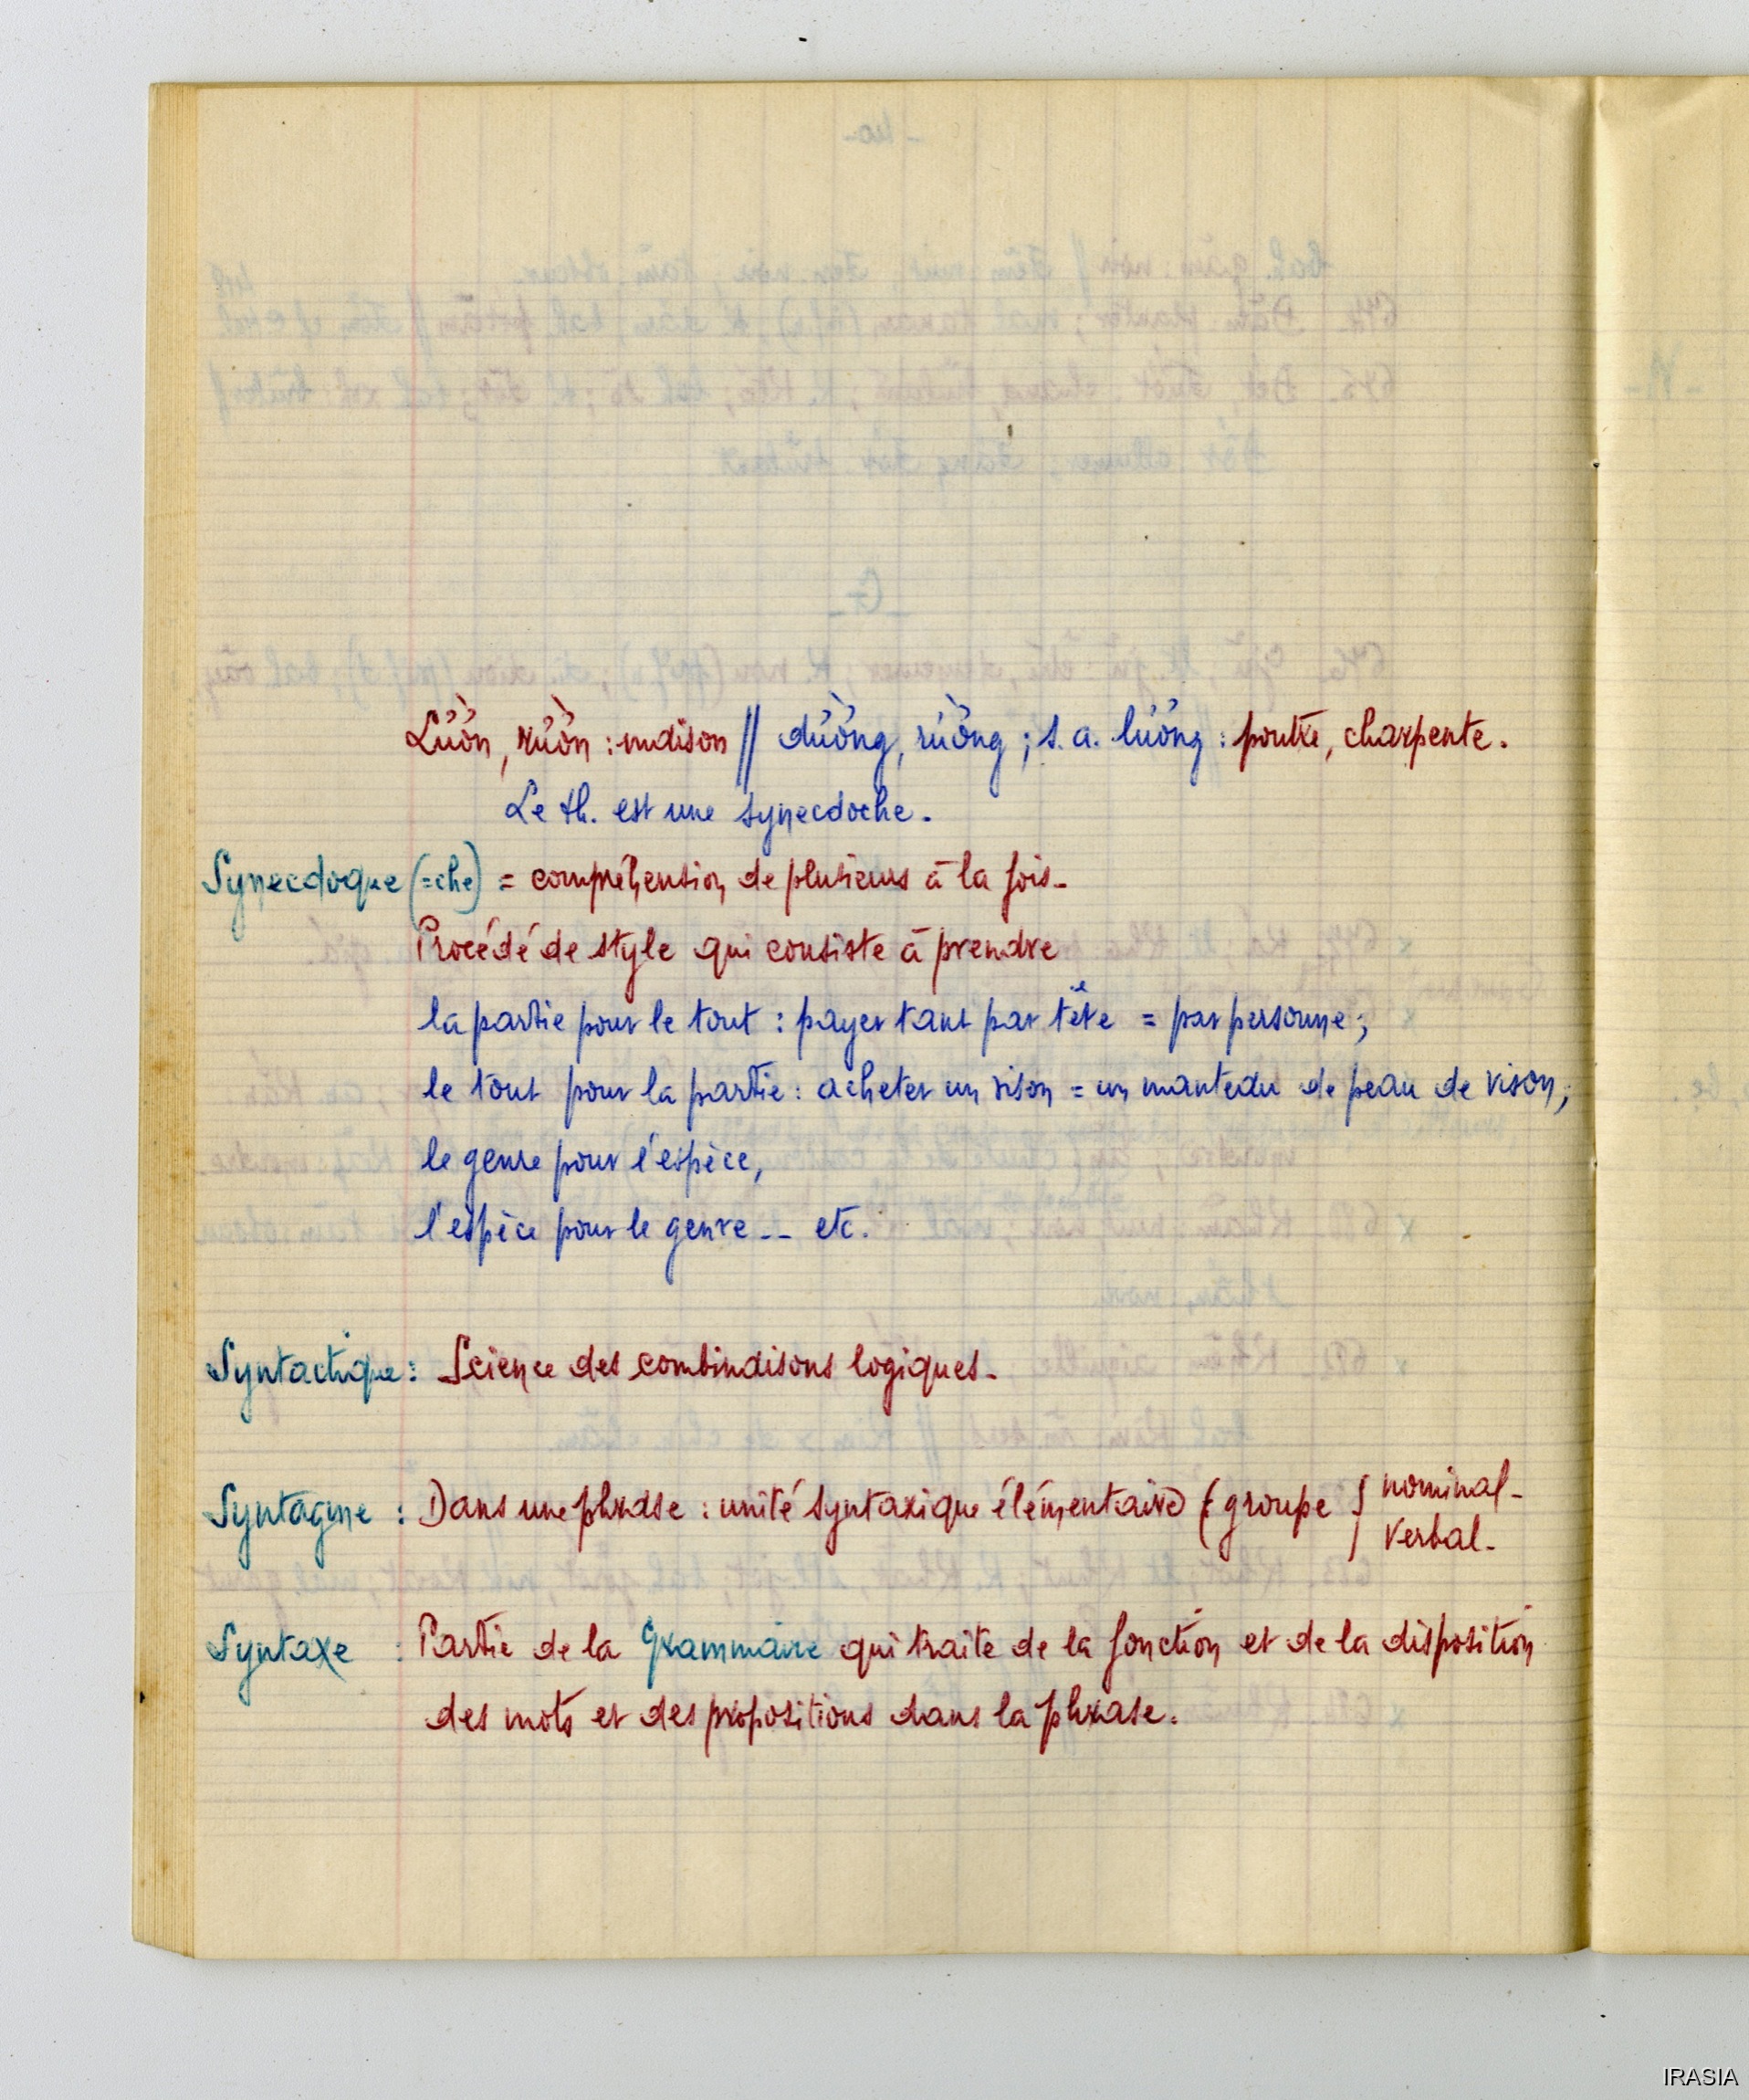 Lườn, rườn : maison // dường, rường ; s. a. lương : poutre, charpente.
Le th. est une synecdoche.
Synecdoque (=che) = compréhension de plusieurs à la fois.
Procédé de style qui consiste à prendre
la partie pour le tout : payer tant par tête = par personne ;
le tout pour la partie : acheter un vison = un manteau de peau de vison ;
le genre pour l'espèce,
l'espèce pour le genre -- etc.
Syntactique : Science des combinaisons logiques.
Syntagme : Dans une phrase : unité syntaxique élémentaire ( groupe { nominal-
verbal-
Syntaxe : Partie de la Grammaire qui traite de la fonction et de la disposition
des mots et des propositions dans la phrase.
IRASIA